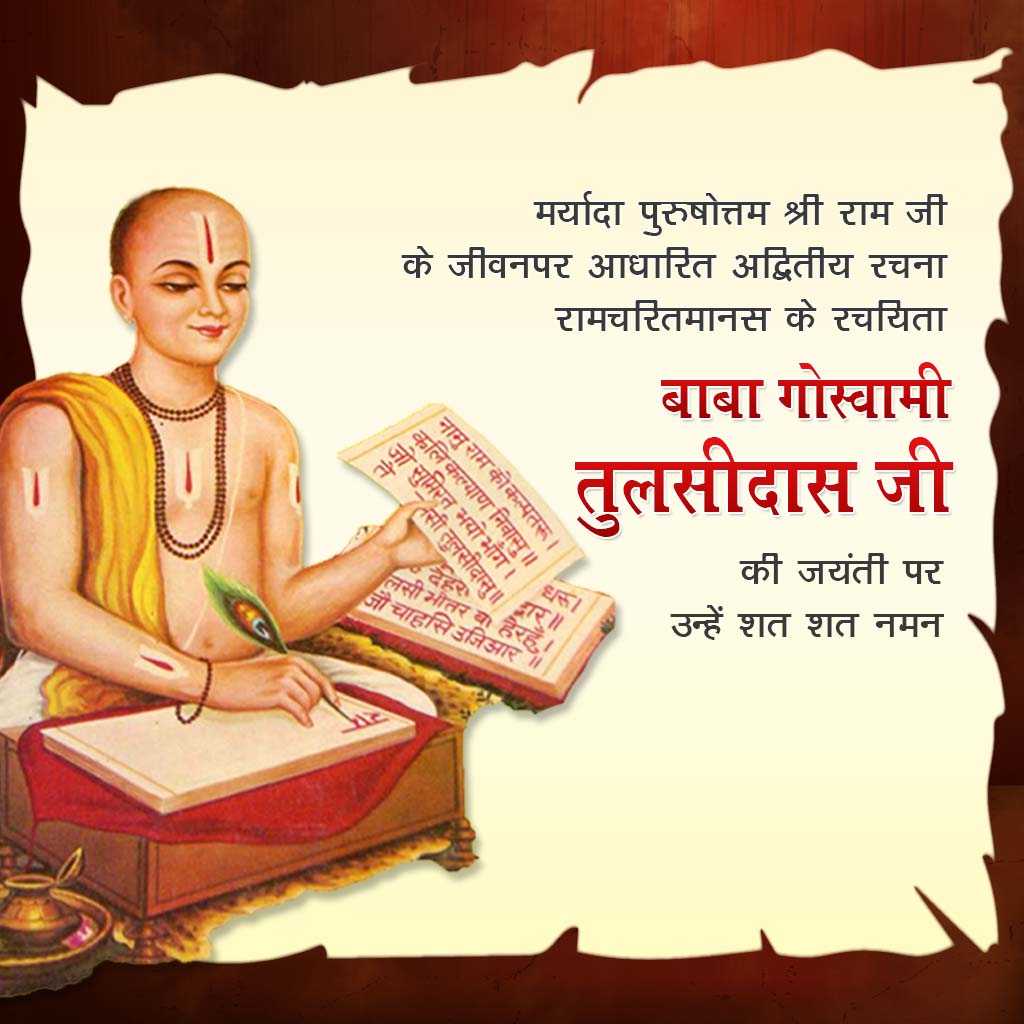 मर्यादा पुरुषोत्तम श्री राम जी
के जीवनपर आधारित अद्वितीय रचना
रामचरितमानस के रचयिता
बाबा गोस्वामी
तुलसीदास जी
की जयंती पर
उन्हें शत शत नमन
नामु राम को कल्पतरु ।
कलि कल्याण निवासु ॥
जो सुमिरत भयो भाँग ।
तुलसी तुलसीदासु ॥
देहरी
भीतर
जौ चाहसि उजिआर ॥
राम